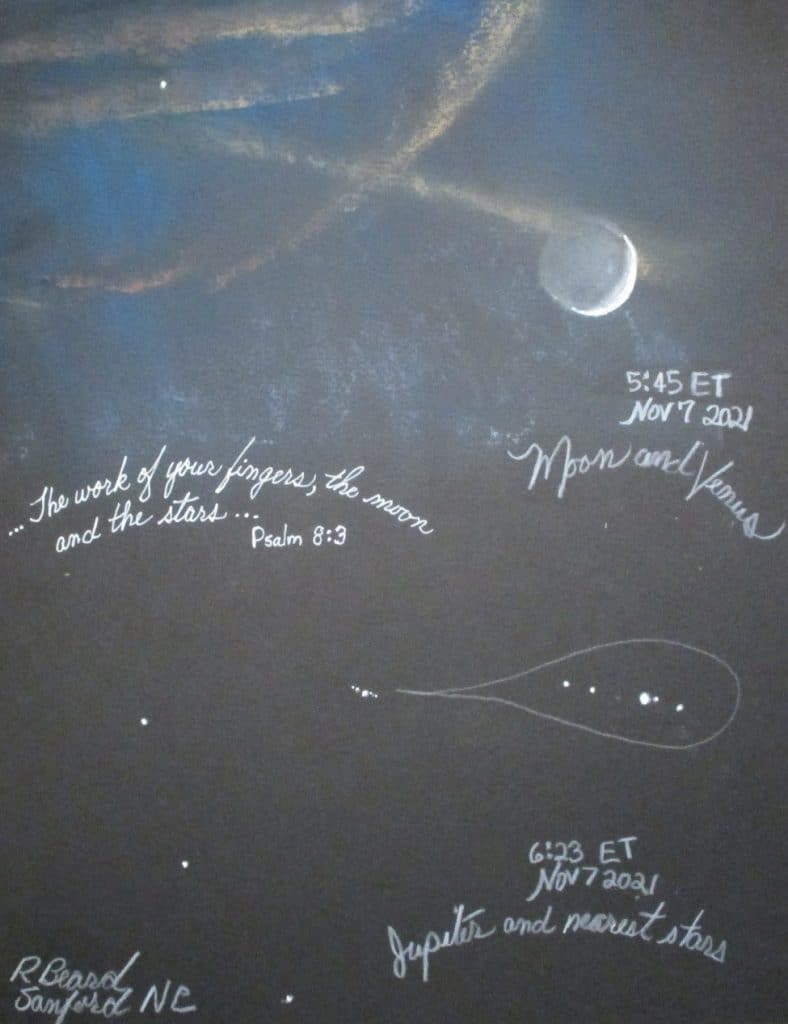 5:45 ET
Nov 7 2021
Moon and Venus
... The work of your fingers, the moon
and the stars ...
Psalm 8:3
6:23 ET
Nov 7 2021
Jupiter and nearest stars
R Beard
Sanford, NC